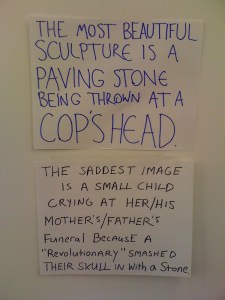 THE MOST BEAUTIFUL
SCULPTURE IS A
PAVING STONE
BEING THROWN AT A
COP'S HEAD.
THE SADDEST IMAGE
IS A SMALL CHILD
CRYING AT HER/HIS
MOTHER'S/FATHER'S
Funeral BECAUSE A
"Revolutionary" SMASHED
THEIR SKULL IN With a Stone.